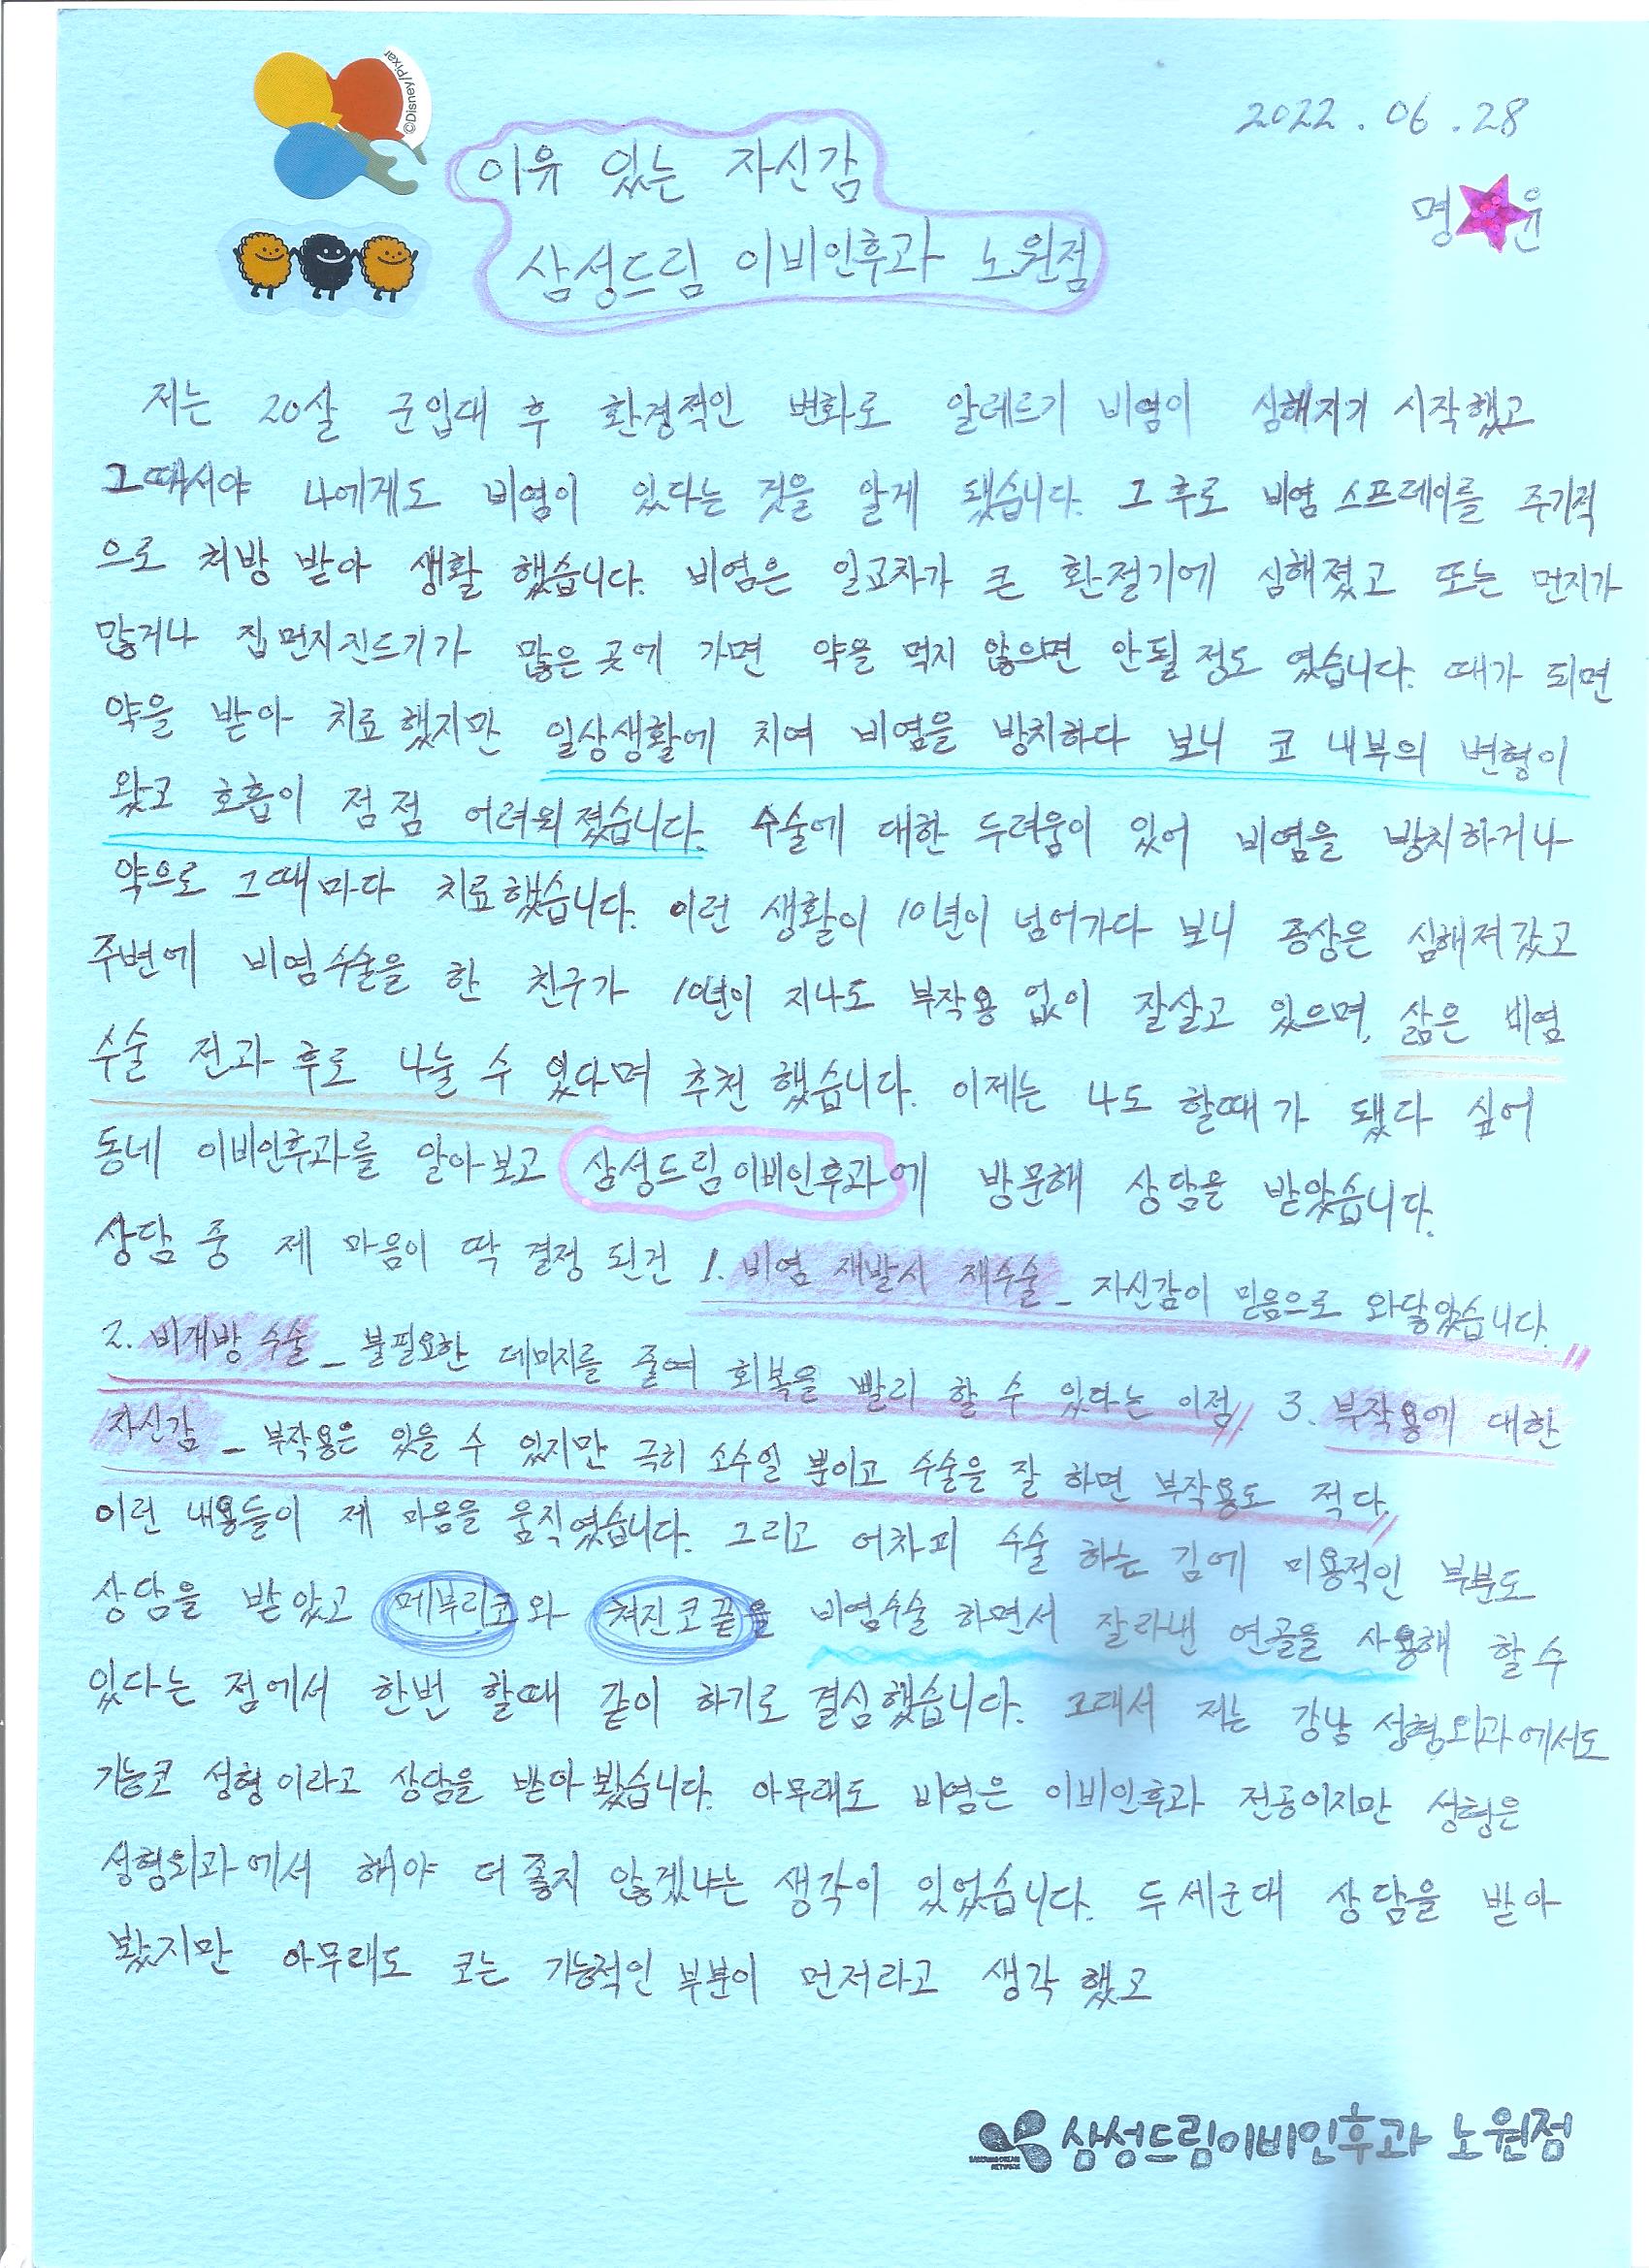 ©Disney/Pixar
2022. 06. 28
이유 있는 자신감
명 윤
삼성드림 이비인후과 노원점
저는 20살 군입대 후 환경적인 변화로 알레르기 비염이 심해지기 시작했고
그때서야 나에게도 비염이 있다는 것을 알게 됐습니다. 그 후로 비염 스프레이를 주기적
으로 처방 받아 생활 했습니다. 비염은 일교차가 큰 환절기에 심해졌고 또는 먼지가
많거나 집먼지진드기가 많은 곳에 가면 약을 먹지 않으면 안될 정도 였습니다. 때가 되면
약을 받아 치료했지만 일상생활에 치여 비염을 방치하다 보니 코 내부의 변형이
왔고 호흡이 점점 어려워졌습니다. 수술에 대한 두려움이 있어 비염을 방치하거나
약으로 그때마다 치료했습니다. 이런 생활이 10년이 넘어가다 보니 증상은 심해져갔고
주변에 비염수술을 한 친구가 10년이 지나도 부작용 없이 잘살고 있으며, 삶은 비염
수술 전과 후로 나눌 수 있다며 추천 했습니다. 이제는 나도 할때가 됐다 싶어
동네 이비인후과를 알아보고 삼성드림이비인후과에 방문해 상담을 받았습니다.
상담 중 제 마음이 딱 결정 된건 1. 비염 재발시 재수술 - 자신감이 믿음으로 와닿았습니다.
2. 비개방 수술 - 불필요한 데미지를 줄여 회복을 빨리 할 수 있다는 이점. 3. 부작용에 대한
자신감 - 부작용은 있을 수 있지만 극히 소수일 뿐이고 수술을 잘 하면 부작용도 적다.
이런 내용들이 제 마음을 움직였습니다. 그리고 어차피 수술 하는 김에 미용적인 부분도
상담을 받았고 메부리코와 쳐진코끝을 비염수술 하면서 잘라낸 연골을 사용해 할 수
있다는 점에서 한번 할때 같이 하기로 결심했습니다. 그래서 저는 강남 성형외과에서도
기능코 성형이라고 상담을 받아봤습니다. 아무래도 비염은 이비인후과 전공이지만 성형은
성형외과에서 해야 더 좋지 않겠냐는 생각이 있었습니다. 두세군대 상담을 받아
봤지만 아무래도 코는 기능적인 부분이 먼저라고 생각 했고
삼성드림이비인후과 노원점